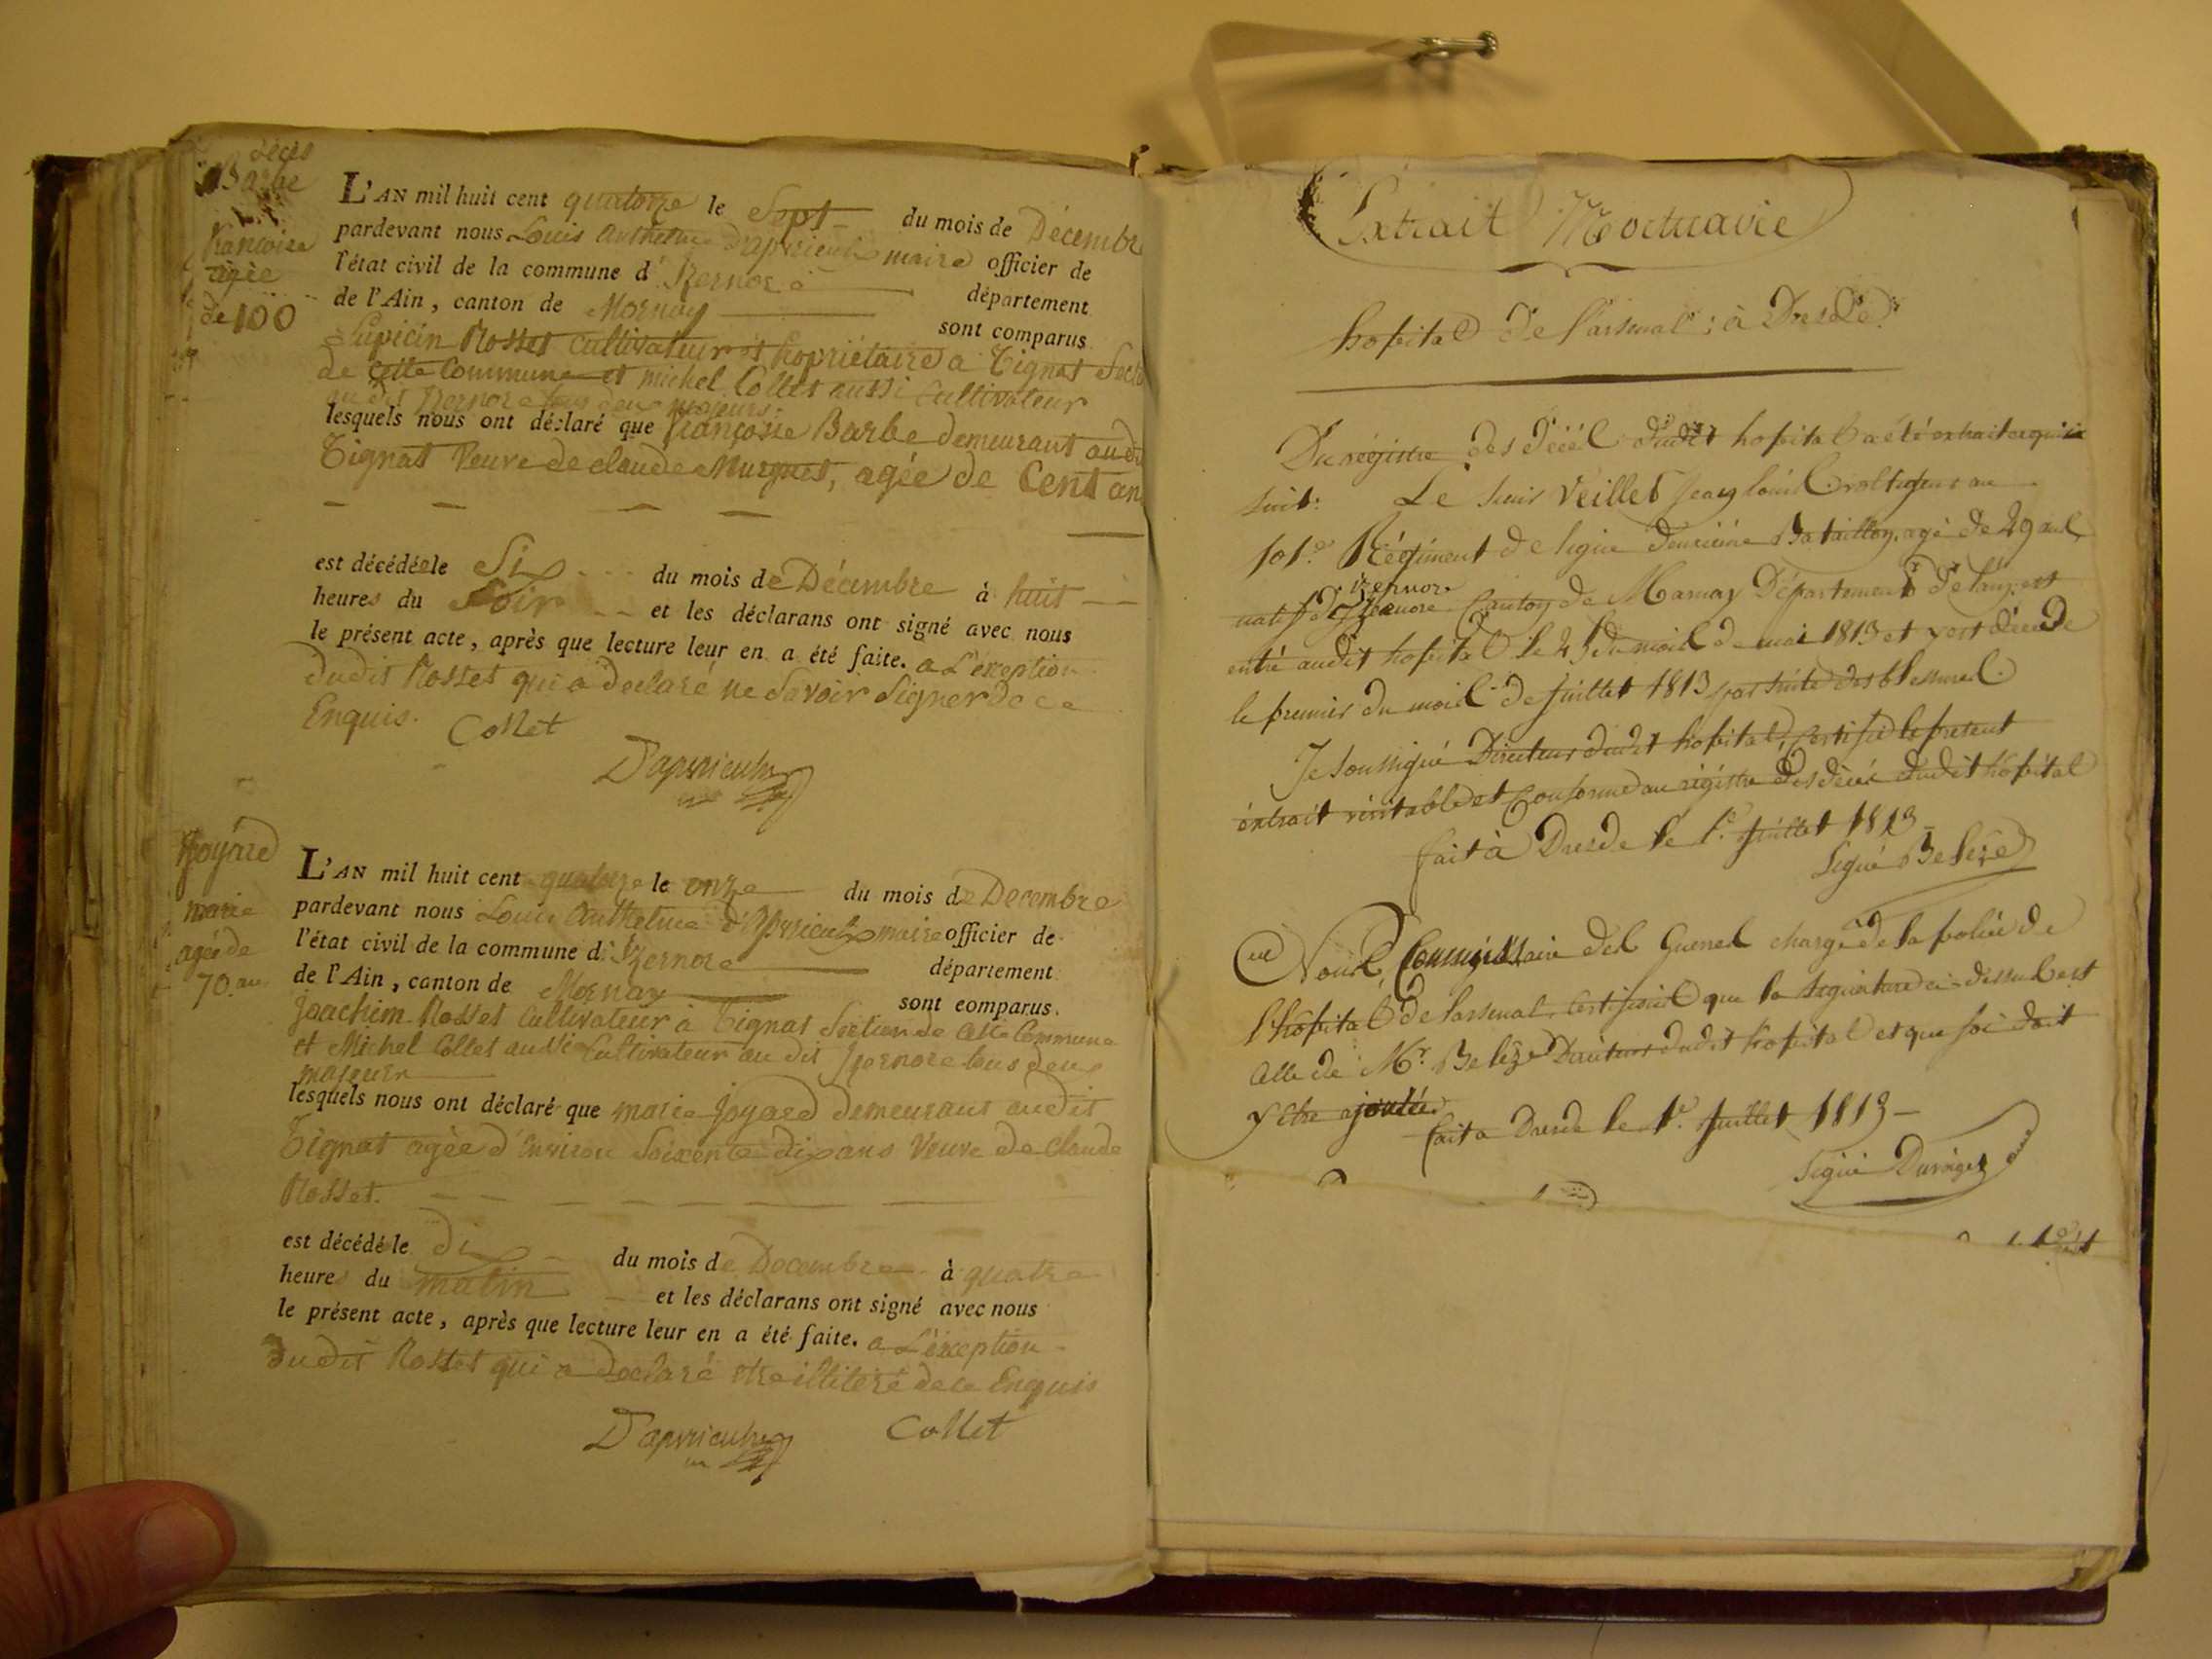 Décès
Barbe
françoise
agée
de 100
L'AN mil huit cent quatorze le Sept du mois de Décembre
pardevant nous Louis Anthelme D'apvrieulx maire officier de
l'état civil de la commune d'Izernore département
de l'Ain, canton de Mornay sont comparus
Lupicin Rosset cultivateur et propriétaire a Tignat Secti
de cette Commune et michel Collet aussi Cultivateur
au dit Izernore tous deux majeurs.
lesquels nous ont déclaré que françoise Barbe demeurant audit
Tignat Veuve de claude Murguet, agée de Cent an
est décédée le Six du mois de Décembre à huit
heures du Soir et les déclarans ont signé avec nous
le présent acte, après que lecture leur en a été faite. a L'éxception
dudit Rosset qui a declaré ne Savoir Signer de ce
Enquis. Collet
D'apvrieulx
Joyard
marie
agée de
70. ans
L'AN mil huit cent quatorze le onze du mois de Decembre
pardevant nous Louis Anthelme D'Apvrieulx maire officier de
l'état civil de la commune d'Izernore département
de l'Ain, canton de Mornay sont comparus.
Joachim Rosset Cultivateur à Tignat Section de cette Commune
et Michel Collet aussi Cultivateur au dit Izernore tous deux
majeurs
lesquels nous ont déclaré que marie Joyard demeurant audit
Tignat agée d'Environ Soixente dix ans Veuve de Claude
Rosset.
est décédé le dix du mois de Decembre à quatre
heures du matin et les déclarans ont signé avec nous
le présent acte, après que lecture leur en a été faite. a L'éxception
dudit Rosset qui a declaré etre illiteré de ce Enquis
D'apvrieulx Collet
Extrait Mortuaire
hopital de l'arsenal; à Dresde.
Du régistre des décèl dudit hopital a été extrait ce qui
suit: Le sieur Veillet Jean louis voltigeur au
101.e Régiment de ligne deuxième Bataillon, agé de 29 ans
izernore
natif d' Canton de Marnay Département de l'ain, est
entré audit hopital le 25 du mois de mai 1813 et y est décédé
le premier du mois de Juillet 1813 par suite des blessures.
Je soussigné Directeur dudit hopital, Certifie le présent
éxtrait véritable et Conforme au régistre des décés dudit hôpital
fait à Dresde le 1.er Juillet 1813
Signé Belèze
Nous, Commissaire des Guerres chargé de la police de
l'hôpital de l'arsenal, Certifions que la signature ci-dessus est
celle de Mr. Belèze Directeur dudit hopital et que foi doit
y être ajoutée.
fait a Dresde le 1.er Juillet 1813
Signé